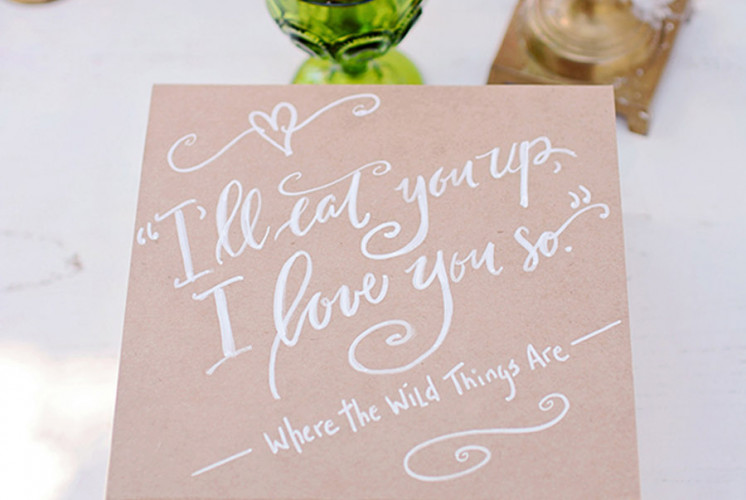 “I'll eat you up,
I love you so.”
— Where the Wild Things Are —